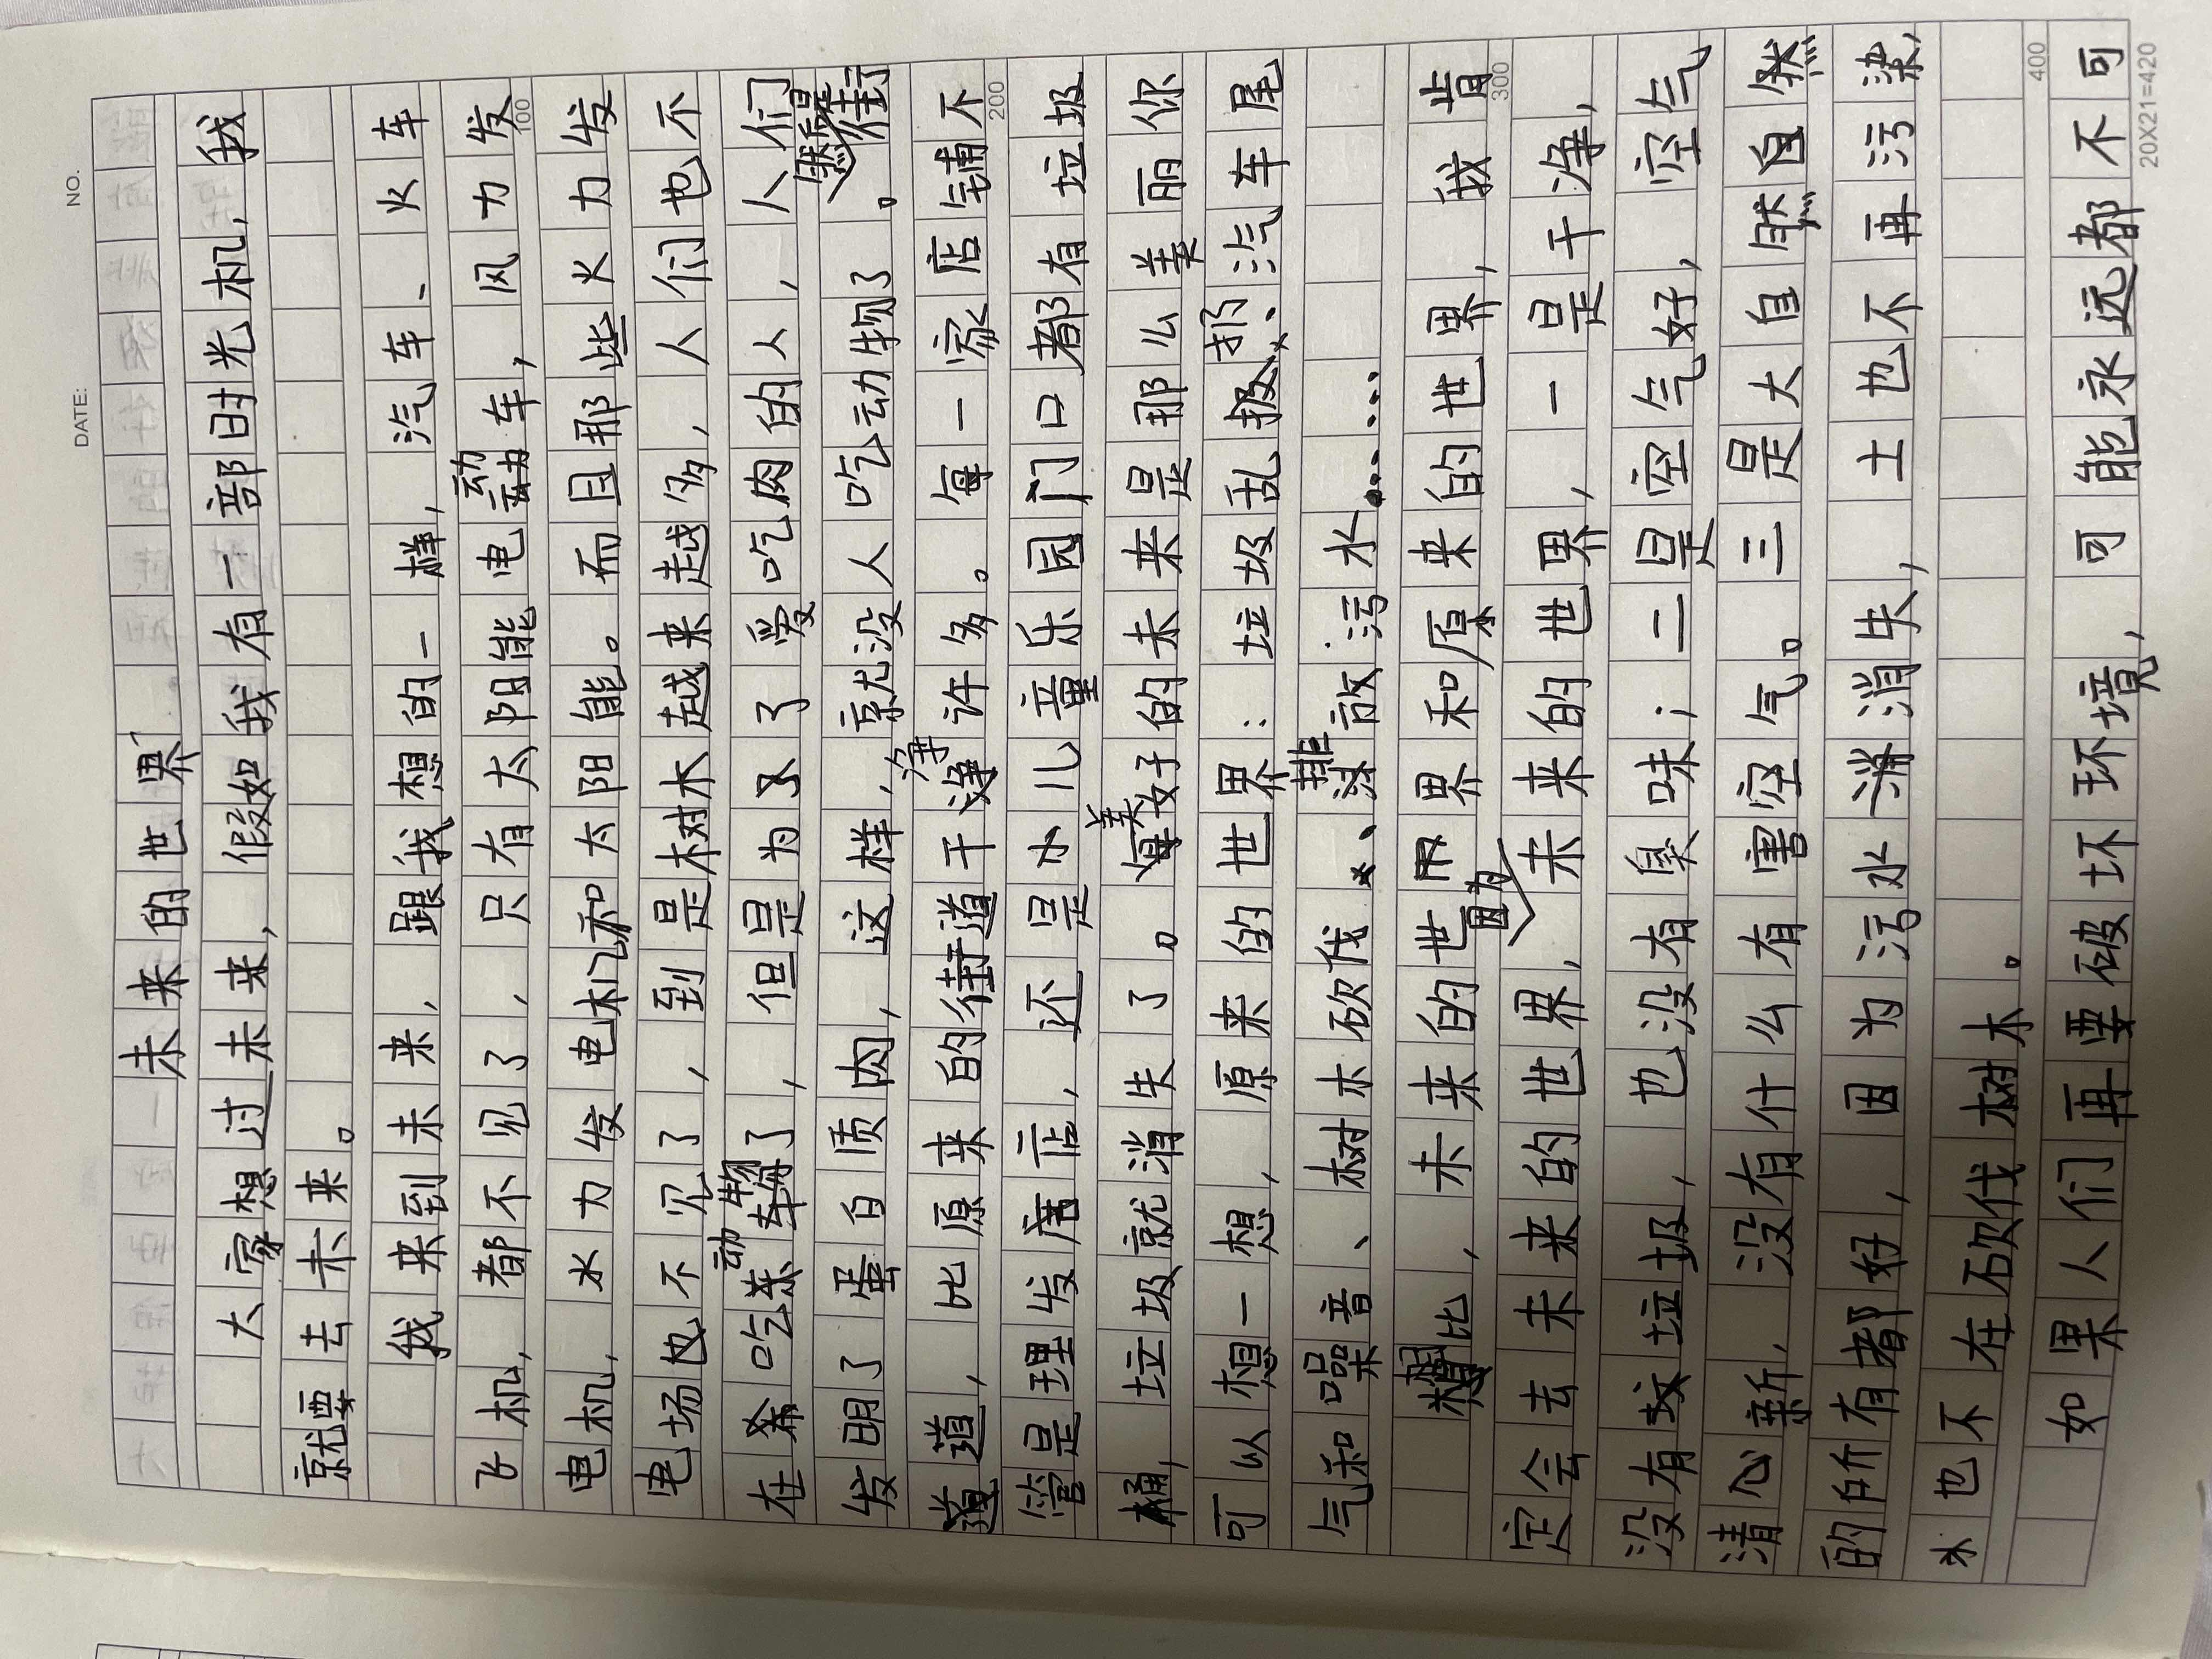 NO.
DATE:
未来的世界
大家想过未来，假如我有一部时光机，我
就要去未来。
我来到未来，跟我想的一样，汽车、火车
飞机，都不见了，只有太阳能电动车，风力发
100
电机，水力发电机和太阳能。而且那些火力发
电场也不见了，到是树木越来越多，人们也不
在吃动物了，但是为了爱吃肉的人，人们
发明了蛋白质肉，这样，就没人吃动物了。街
道道，比原来的街道干净许多。每一家店铺不
200
管是理发店，还是小儿童乐园门口都有垃圾
桶，垃圾就消失了。美好的未来是那么美丽你
可以想一想，原来的世界：垃圾乱扔、汽车尾
气和噪音、树木砍伐、排放污水……
相比，未来的世界和原来的世界，我肯
300
定会去未来的世界，因为未来的世界，一是干净，
没有垃圾，也没有臭味；二是空气好，空气
清心新，没有什么有害空气。三是大自然自然
的所有都好，因为污水消失，土也不再污染，
水也不在砍伐树木。
400
如果人们再要破坏环境，可能永远都不可
20X21=420